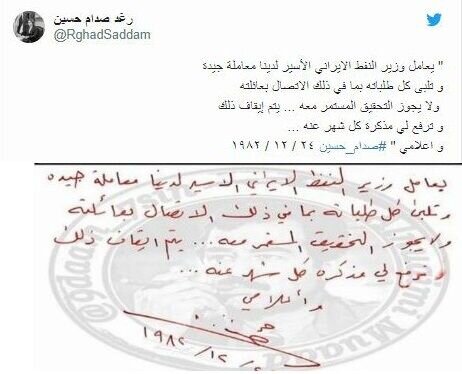 رغد صدام حسين
@RghadSaddam
" يعامل وزير النفط الايراني الأسير لدينا معاملة جيدة
و تلبى كل طلباته بما في ذلك الاتصال بعائلته
ولا يجوز التحقيق المستمر معه ... يتم إيقاف ذلك
و ترفع لي مذكرة كل شهر عنه ...
و اعلامي " #صدام_حسين ٢٤ / ١٢ / ١٩٨٢
يعامل وزير النفط الايراني الاسير لدينا معاملة جيده
وتلبى كل طلباته بما في ذلك الاتصال بعائلته
ولا يجوز التحقيق المستمر معه ... يتم ايقاف ذلك
وترفع لي مذكره كل شهر عنه ...
و أعلامي
١٩٨٢ / ١٢ /